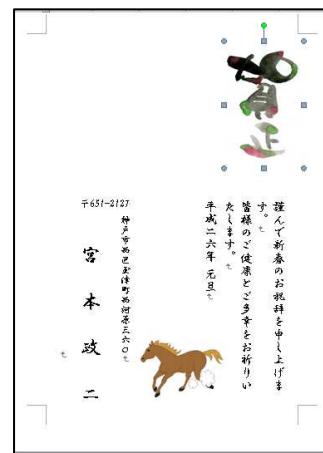 賀正
謹んで新春のお祝辞を申し上げま
す。
皆様のご健康とご多幸をお祈りい
たします。
平成二六年 元旦
〒651-2127
神戸市西区玉津町西河原三六〇
宮本政二